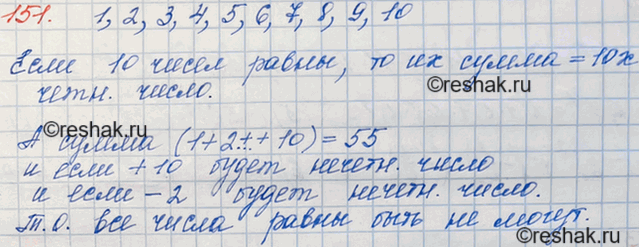 151. 1, 2, 3, 4, 5, 6, 7, 8, 9, 10
Если 10 чисел равны, то их сумма = 10х
четн. число.
©reshak.ru
©reshak.ru
А сумма (1+2+..+10) = 55
и если +10 будет нечетн. число
и если -2 будет нечетн. число.
Т.о. все числа равны быть не могут.
©reshak.ru
©reshak.ru